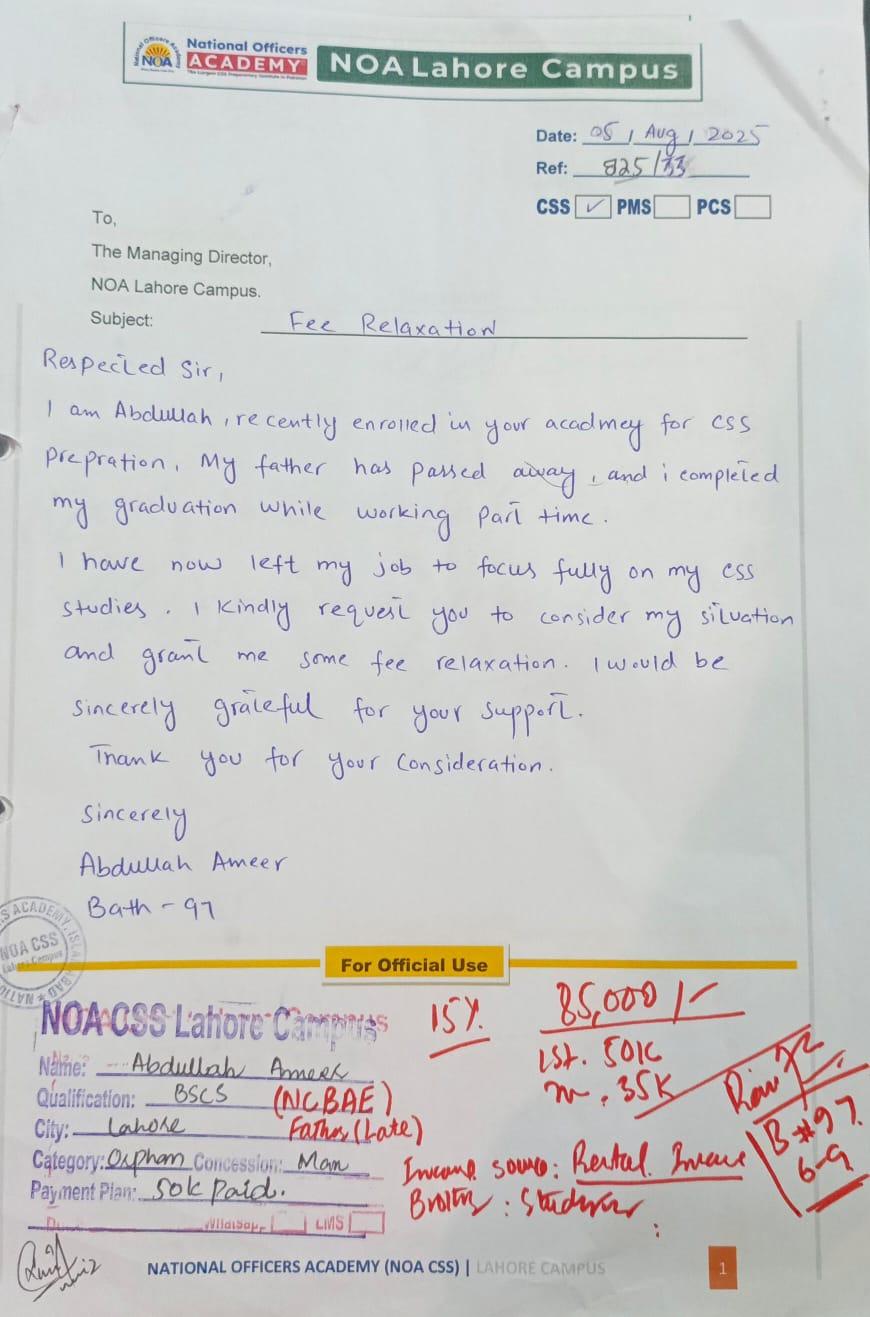 National Officers
ACADEMY
NOA
NOA Lahore Campus
Date: 05 / Aug / 2025
Ref: 825/33
CSS ✓ PMS PCS
To,
The Managing Director,
NOA Lahore Campus.
Subject: Fee Relaxation
Respected Sir,
I am Abdullah, recently enrolled in your acadmey for CSS
Prepration. My father has passed away, and i completed
my graduation while working Part time.
I have now left my job to focus fully on my CSS
studies. I Kindly request you to consider my situation
and grant me some fee relaxation. I would be
sincerely grateful for your support.
Thank you for your Consideration.
Sincerely
Abdullah Ameer
Bath - 97
NOA CSS
For Official Use
NOA CSS Lahore Campus
15%
85,000/-
1st. 50K
35K
Name: Abdullah Ameer
Qualification: BSCS (NCBAE)
City: Lahore Father (Late)
Category: Orphan Concession: Man
Payment Plan: 50k Paid.
Income source: Rental Income
Brother: Student
B#97
6-9
WhatsApp LMS
NATIONAL OFFICERS ACADEMY (NOA CSS) | LAHORE CAMPUS
1